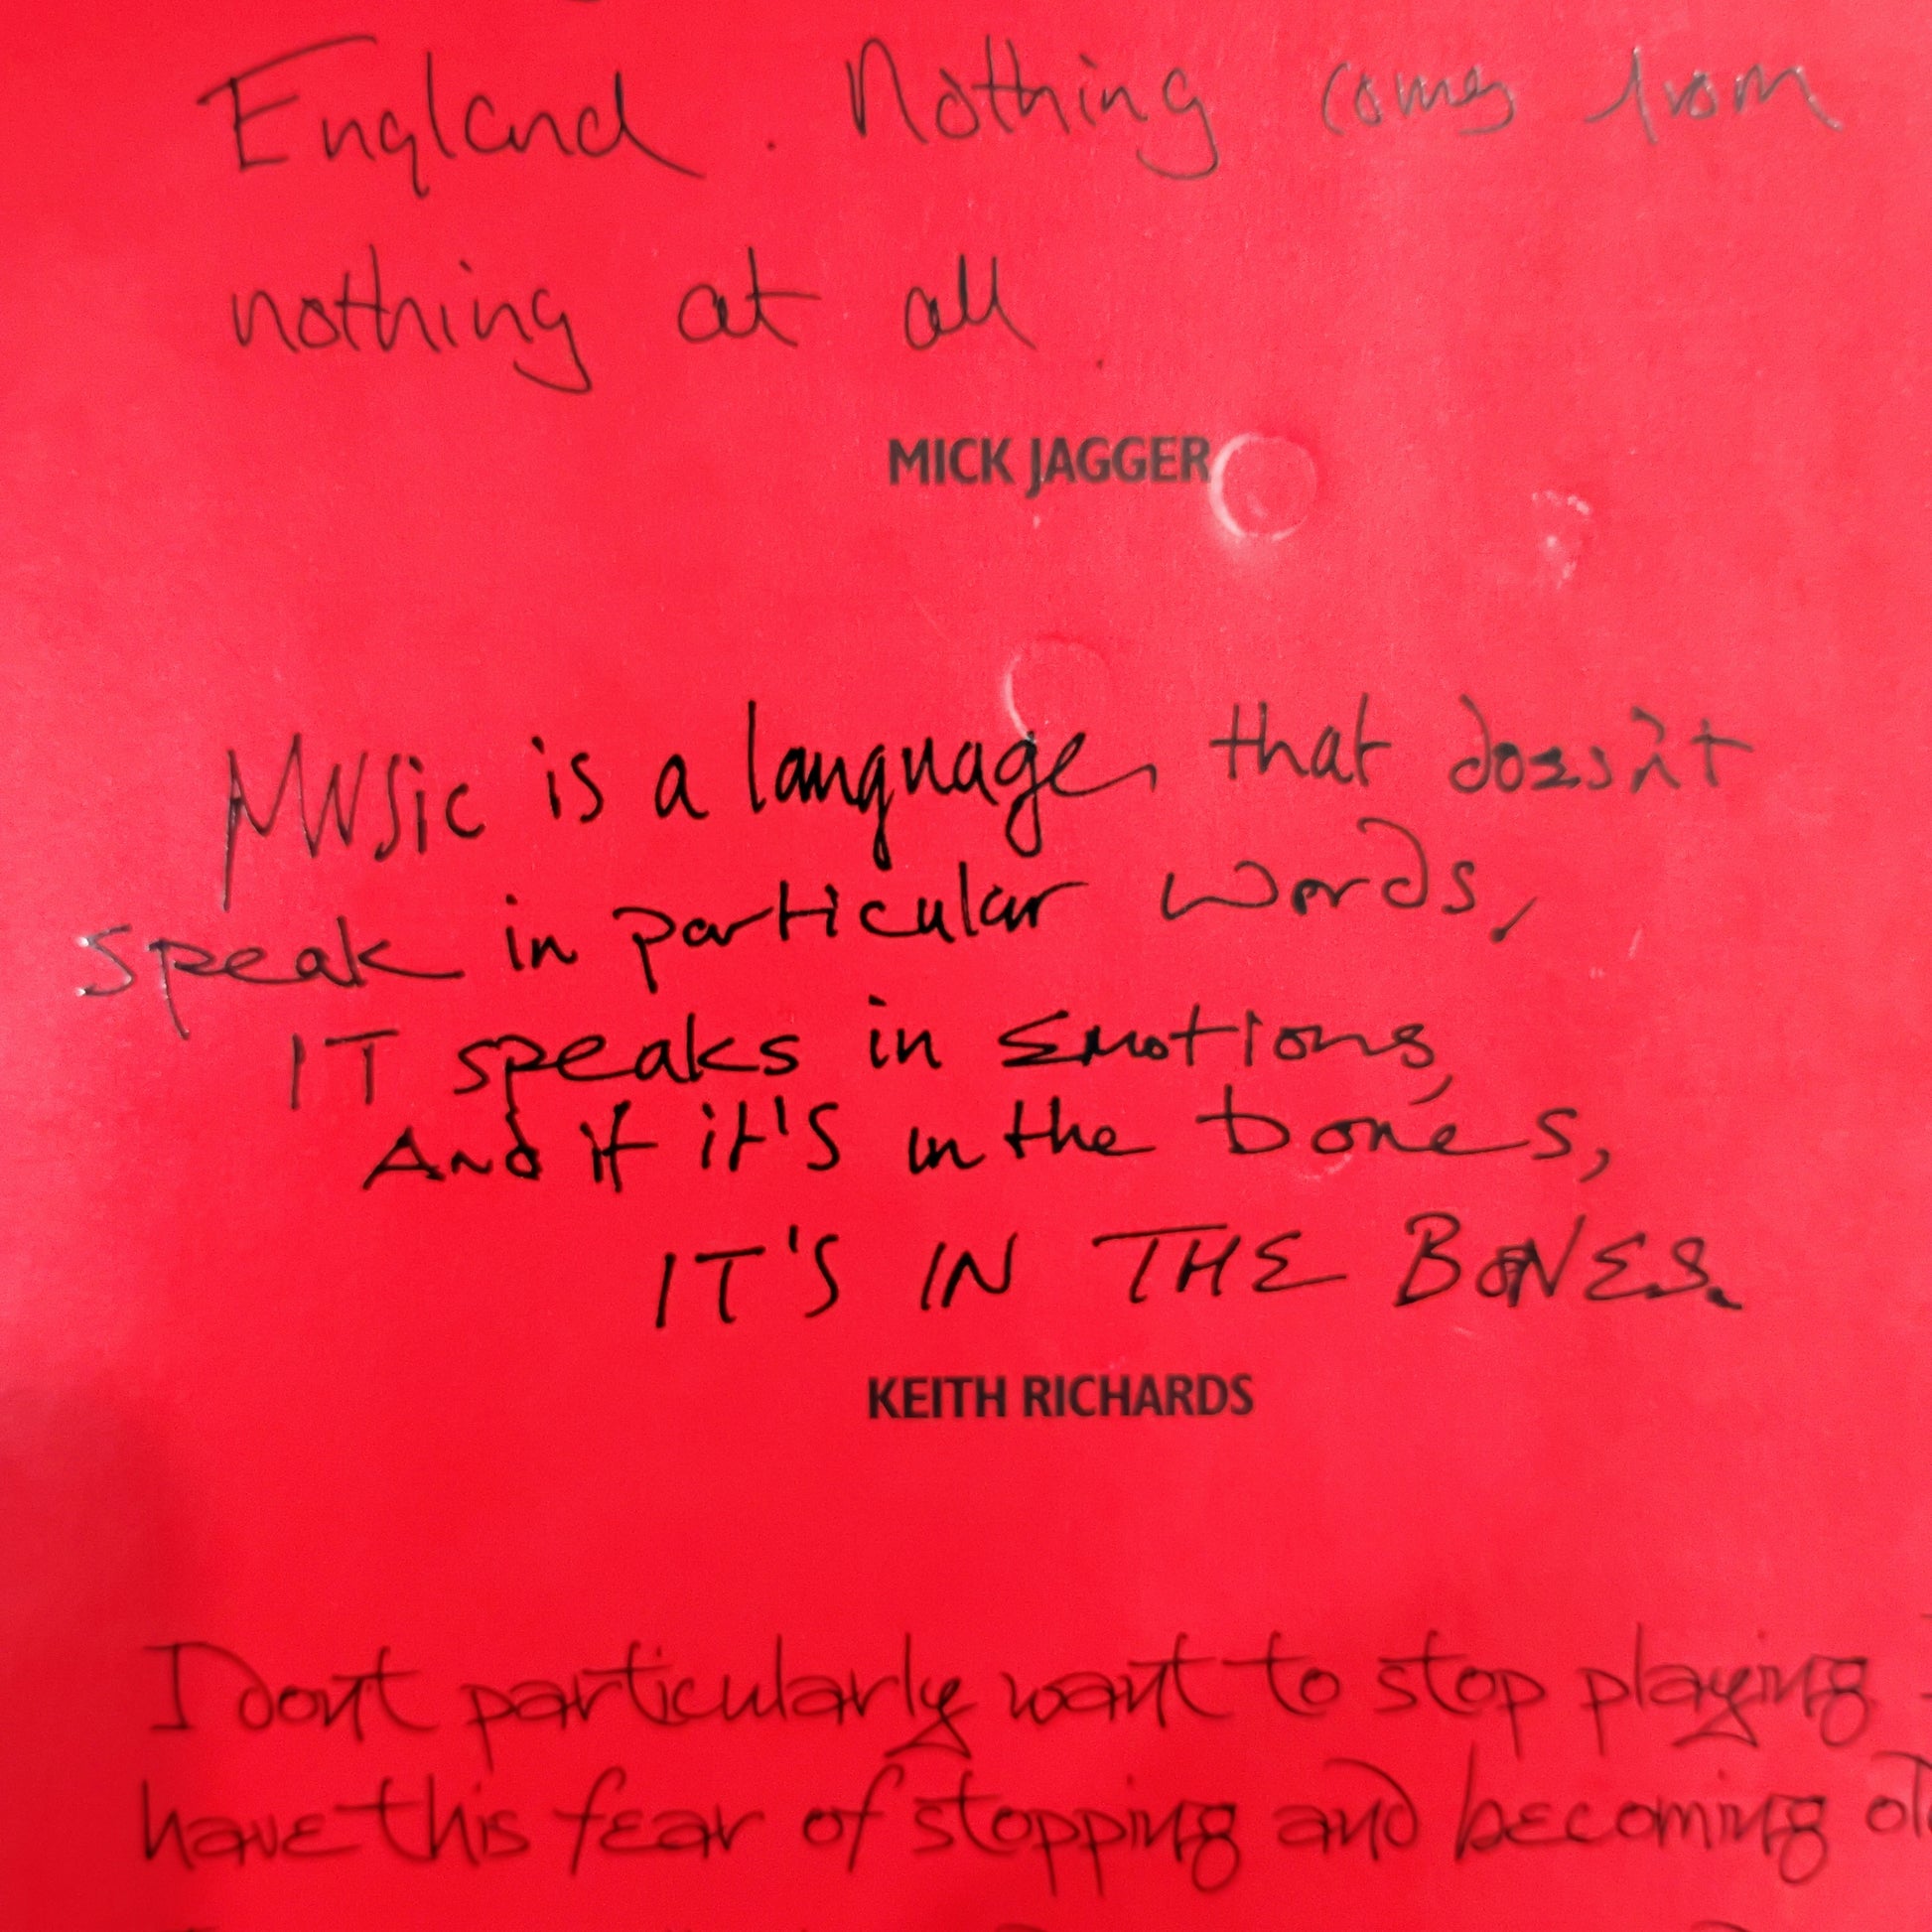 England. Nothing comes from
nothing at all.
MICK JAGGER
Music is a language, that doesn't
speak in particular words,
IT speaks in Emotions,
And if it's in the bones,
IT'S IN THE BONES.
KEITH RICHARDS
I dont particularly want to stop playing
have this fear of stopping and becoming